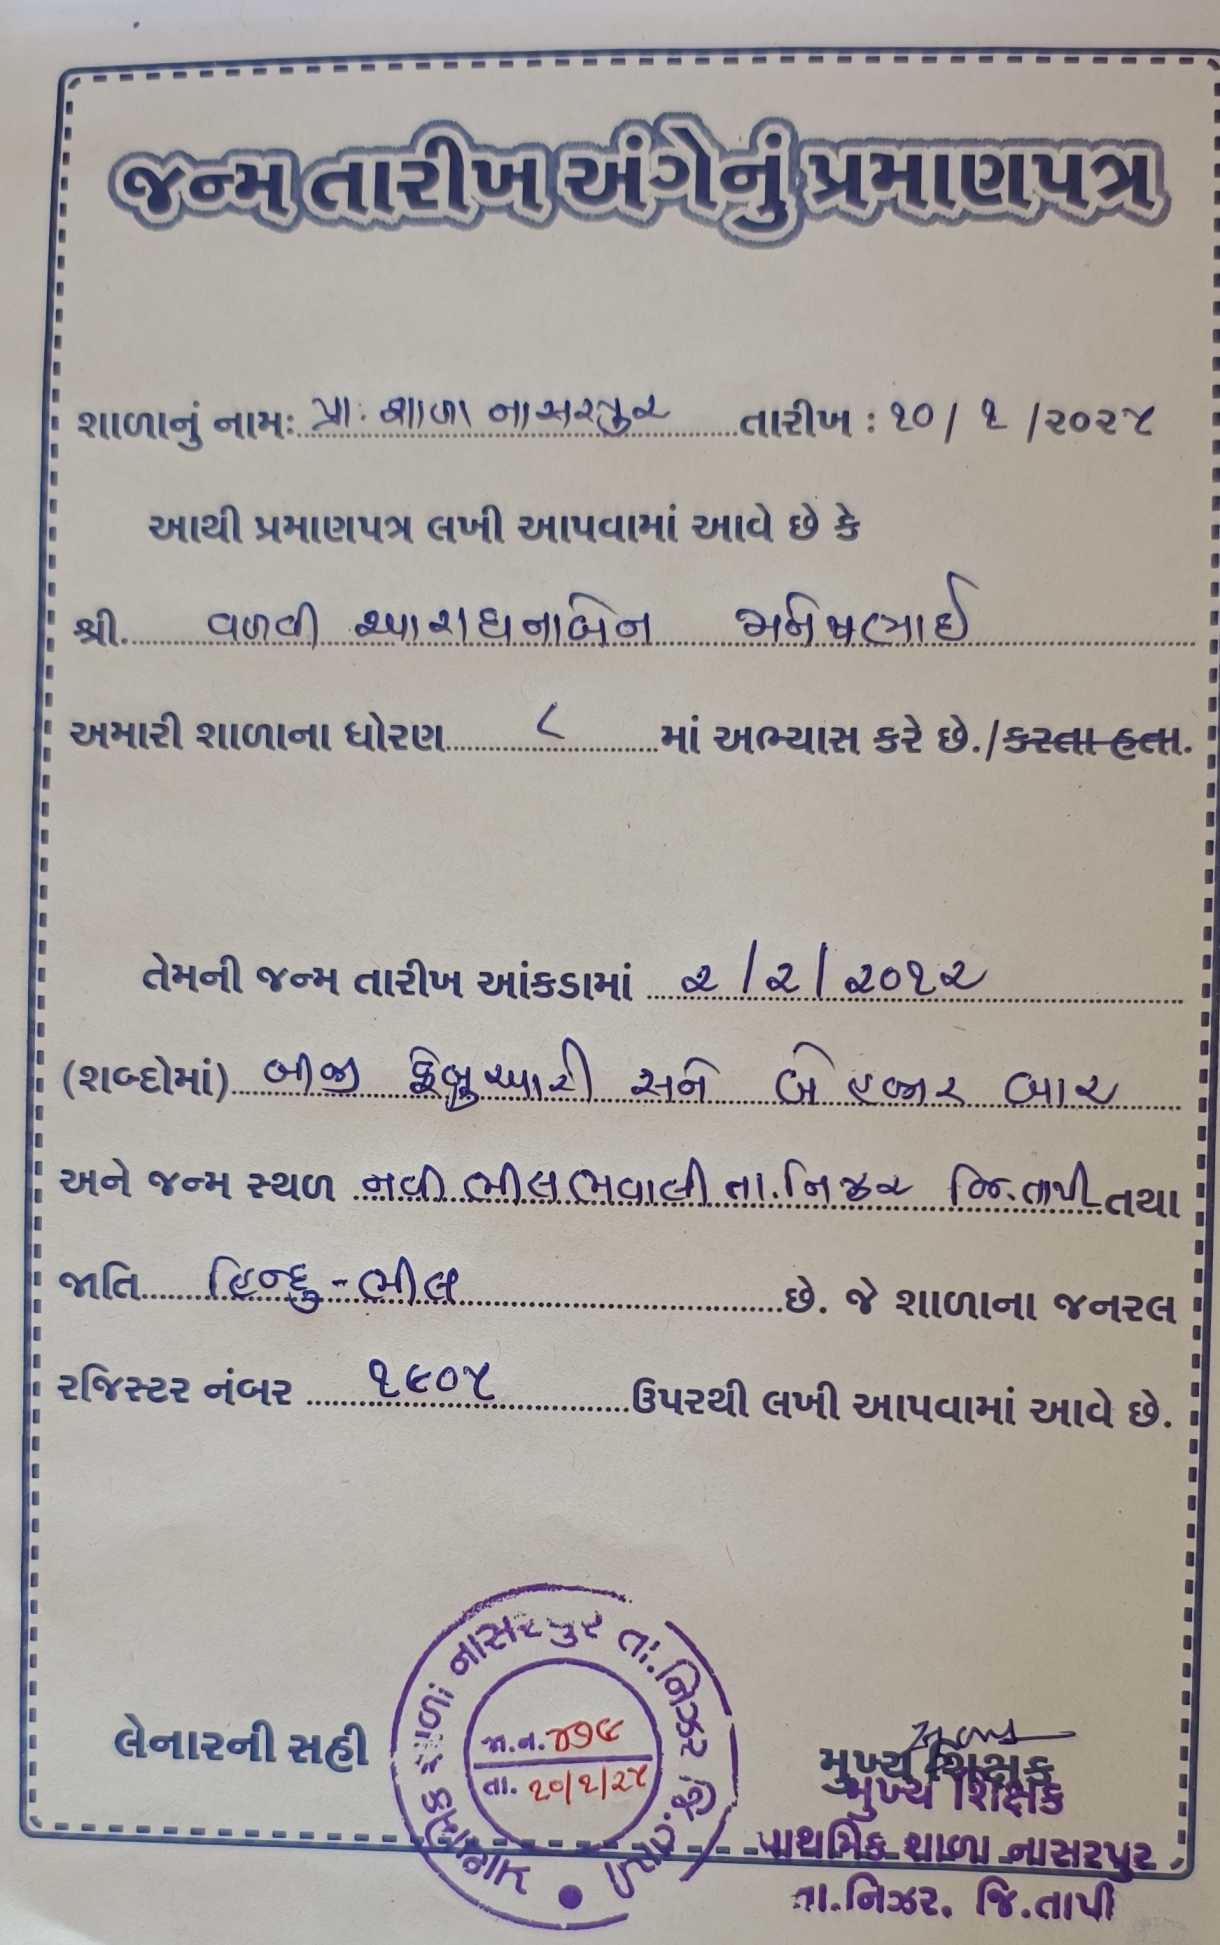 જન્મ તારીખ અંગેનું પ્રમાણપત્ર
શાળાનું નામ: પ્રા. શાળા નાસરપુર તારીખ : ૧૦/ ૧ /૨૦૨૫
આથી પ્રમાણપત્ર લખી આપવામાં આવે છે કે
શ્રી. વળવી આરાધનાબેન મનેષભાઈ
અમારી શાળાના ધોરણ ૮ માં અભ્યાસ કરે છે./કરતા હતા.
તેમની જન્મ તારીખ આંકડામાં ૨/૨/૨૦૧૨
(શબ્દોમાં) બીજી ફેબ્રુઆરી સને બે હજાર બાર
અને જન્મ સ્થળ નવી ભીલભવાલી તા.નિઝર જિ.તાપી તથા
જાતિ હિન્દુ-ભીલ છે. જે શાળાના જનરલ
રજિસ્ટર નંબર ૧૯૦૫ ઉપરથી લખી આપવામાં આવે છે.
પ્રાથમિક શાળા નાસરપુર તા.નિઝર જિ.તાપી
જા.ન.
તા. ૧૦/૧/૨૫
લેનારની સહી
મુખ્ય શિક્ષક
મુખ્ય શિક્ષક
પ્રાથમિક શાળા નાસરપુર
તા.નિઝર. જિ.તાપી